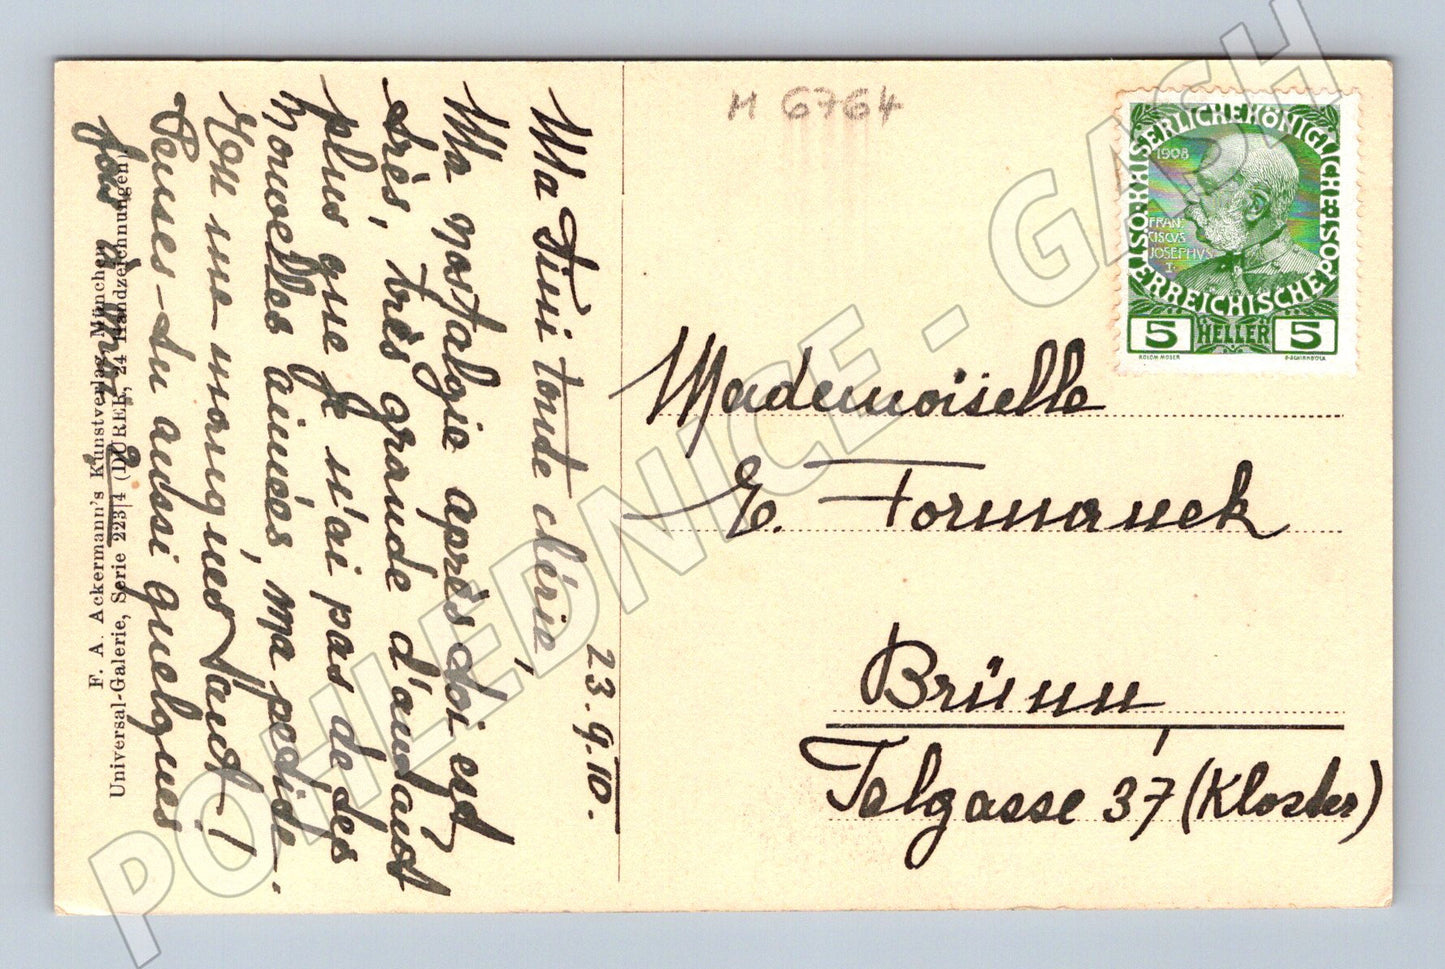 M 6764
KAISERLICHE KÖNIGLICHE
ÖSTERREICHISCHE POST
1908
FRAN-
CISCVS
JOSEPHVS
I.
5 HELLER 5
KOLOM. MOSER
F. SCHIRNBÖCK
Mademoiselle
E. Formanek
Brünn,
Talgasse 37 (Kloster)
23. 9. 10.
Ma Fini toute chérie,
Ma nostalgie après toi est
très, très grande d'autant
plus que je n'ai pas de tes
nouvelles aimées, ma petite.
You me manques tant!
Penses-tu aussi quelques
fois à
F. A. Ackermann's Kunstverlag, München
Universal-Galerie, Serie 223|4 (DÜRER, 24 Handzeichnungen)
POHLEDNICE - GASH